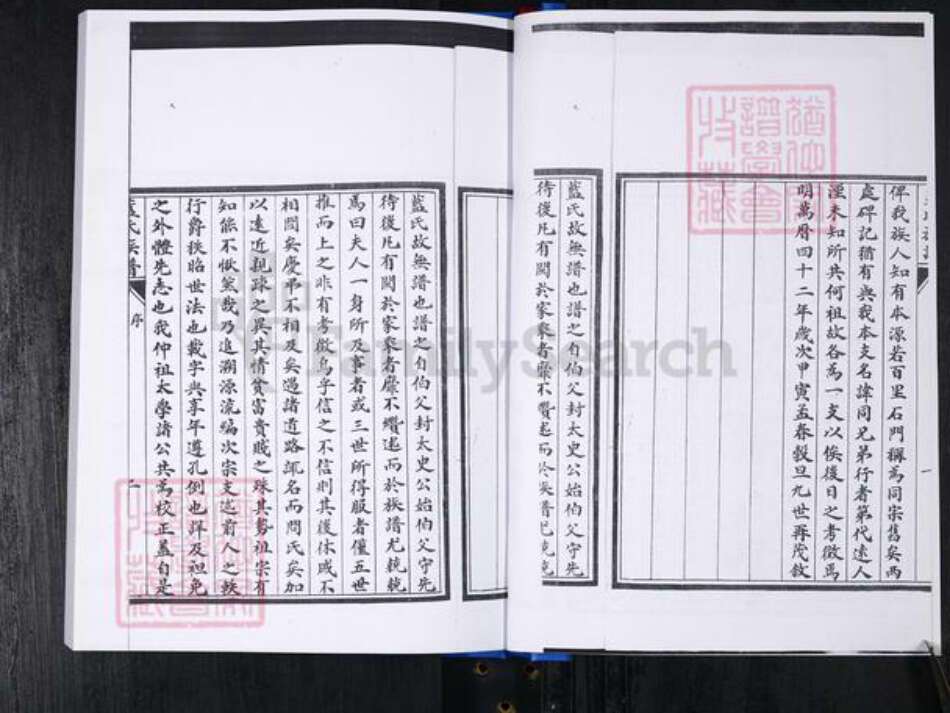 俾我族人知有本源若百里石門稱為同宗舊矣兩
處碑記猶有與我本支名諱同兄弟行者第代遠人
湮未知所共何祖故各為一支以俟後日之考徵焉
明萬曆四十二年歲次甲寅孟春穀旦九世再茂敘
藍氏故無譜也譜之自伯父封太史公始伯父守先
待後凡有關於家乘者靡不纘述而於族譜尤兢兢
藍氏故無譜也譜之自伯父封太史公始伯父守先
待後凡有關於家乘者靡不纘述而於族譜尤兢兢
焉曰夫人一身所及事者或三世所得服者僅五世
推而上之非有考徵烏乎信之不信則其後休戚不
相關矣慶弔不相及矣遇諸道路詢名而問氏矣加
以遠近親疎之異其情貧富貴賤之殊其勢祖宗有
知能不愀然哉乃追溯源流編次宗支述前人之軼
行爵秩昭世法也載字與享年遵孔例也詳及袒免
之外體先志也我仲祖太學諸公共為校正蓋自是
藍氏族譜
序
二
一
譜學會
收藏
FamilySearch